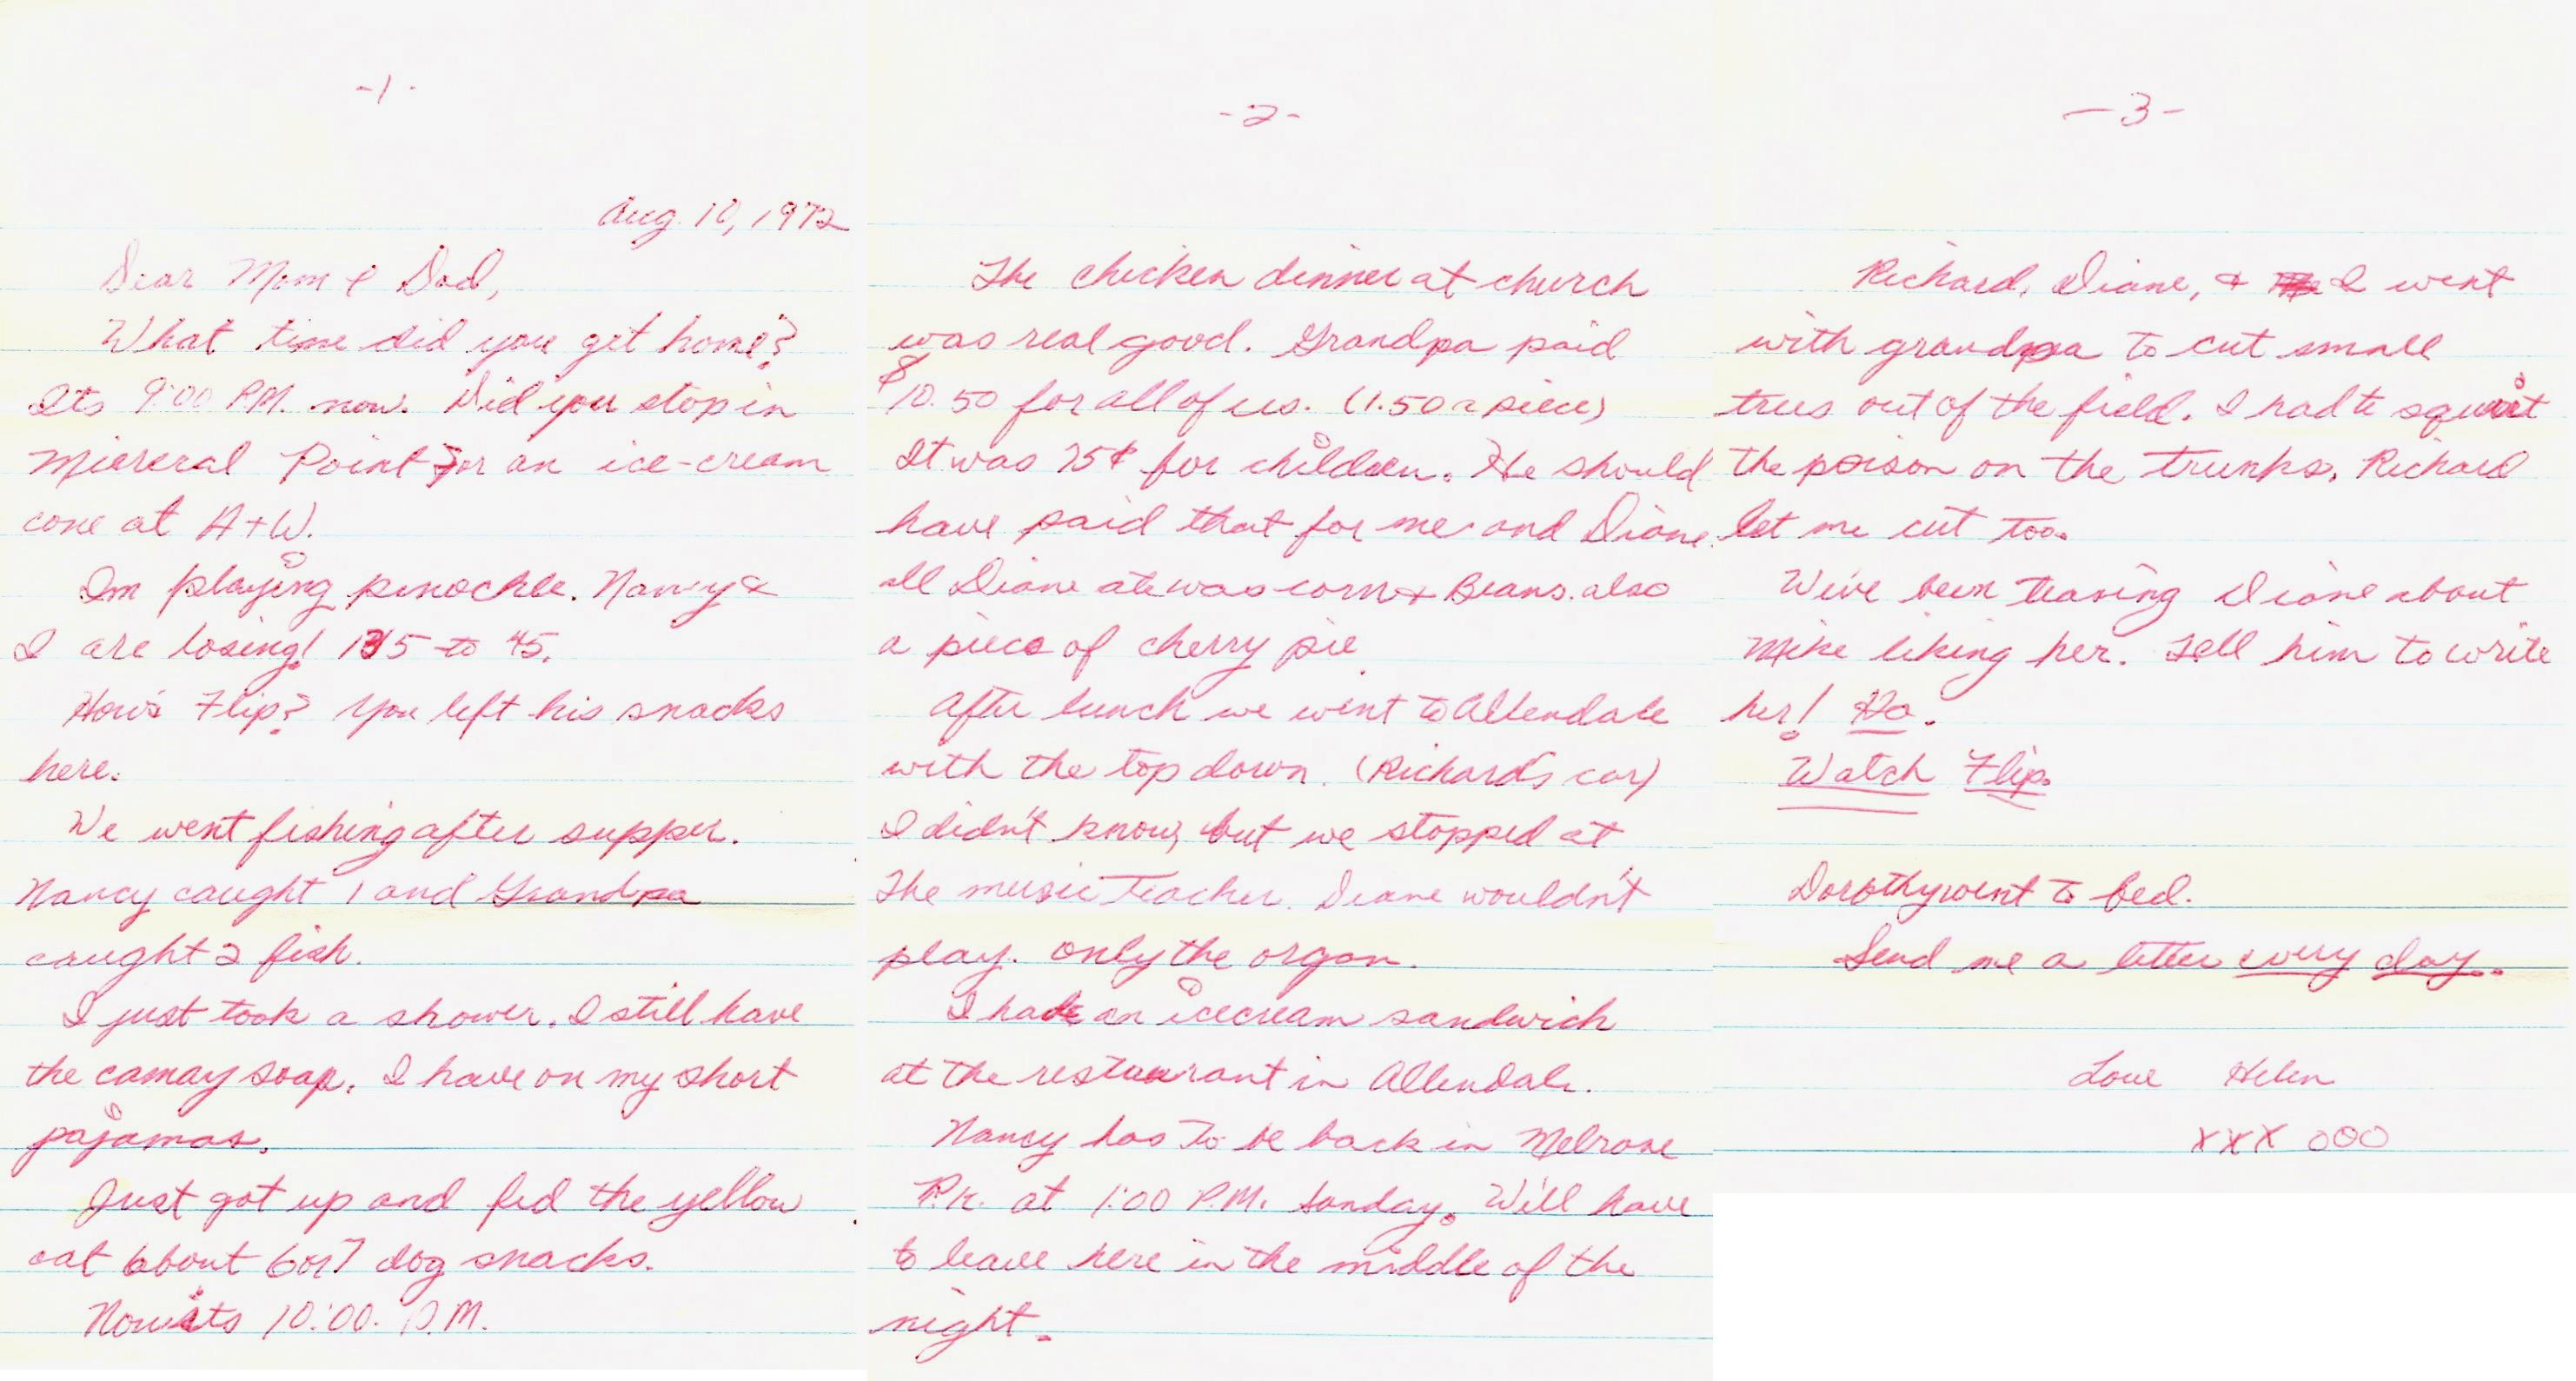 -1-
Aug. 10, 1972
Dear Mom & Dad,
What time did you get home?
Its 9:00 P.M. now. Did you stop in
Miereral Point for an ice-cream
cone at A+W.
Im playing pinochle. Nancy &
I are losing! 135 to 45.
How's Flip? You left his snacks
here.
We went fishing after supper.
Nancy caught 1 and Grandpa
caught 2 fish.
I just took a shower. I still have
the camay soap. I have on my short
pajamas.
Just got up and fed the yellow
cat about 6 or 7 dog snacks.
Now its 10:00. P.M.
-2-
The chicken dinner at church
was real good. Grandpa paid
$10.50 for all of us. (1.50 a piece)
It was 75¢ for children. He should
have paid that for me and Diane.
all Diane ate was corn + Beans. also
a piece of cherry pie
After lunch we went to Allendale
with the top down. (Richard's car)
I didn't know, but we stopped at
the music Teacher. Diane wouldn't
play. only the organ.
I had an icecream sandwich
at the restaurant in Allendale.
Nancy has to be back in Melrose
P.k. at 1:00 P.M. Sunday. Will have
to leave here in the middle of the
night.
-3-
Richard, Diane, & I went
with grandpa to cut small
trees out of the field. I had to squirt
the poison on the trunks. Richard
let me cut too.
We've been teasing Diane about
Mike liking her. Tell him to write
her! Ha.
Watch Flip.
Dorothy went to bed.
Send me a letter every day.
Love Helen
XXX OOO